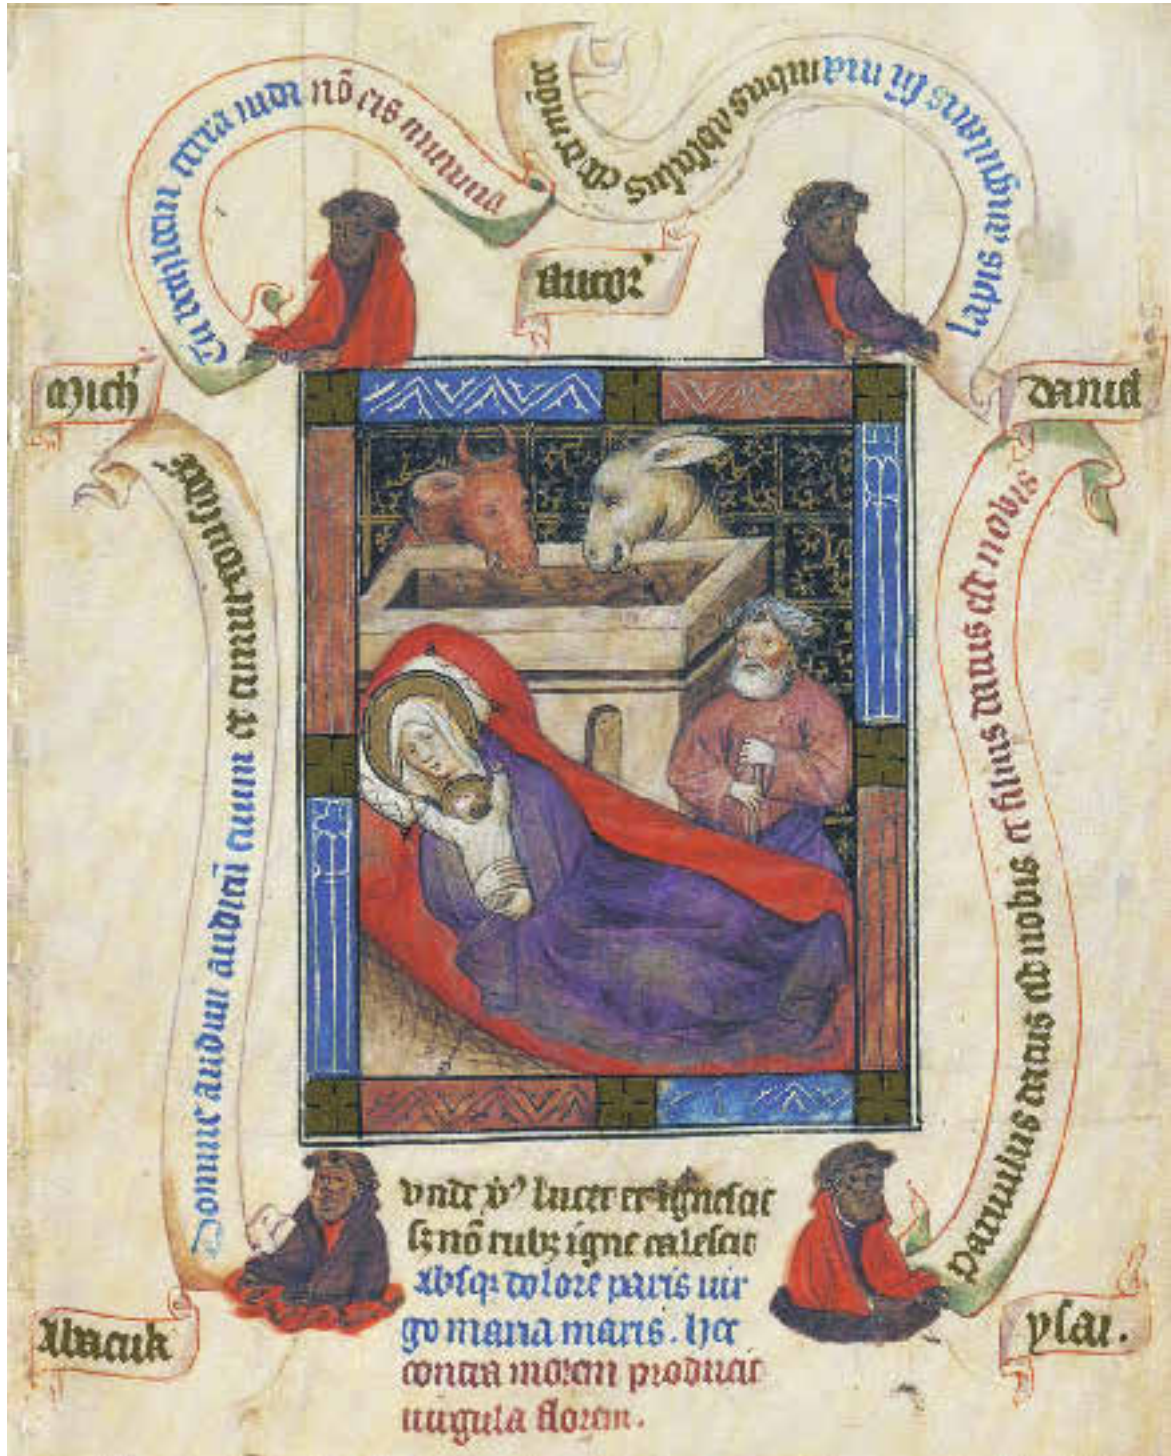 Tu bethleem terra iuda nō eis minima
lapis angularis manibus abscisus est a mōte
Auctor'
Mich'
daniel
Domine audiui auditū tuum et timui
paruulus natus est nobis et filius datus est nobis
lucet et ignescit
sꝫ nō rubꝫ igne calescit
absqꝫ dolore paris uir
go maria maris. hec
contra morem producit
uirgula florem.
Abacuk
ysai.